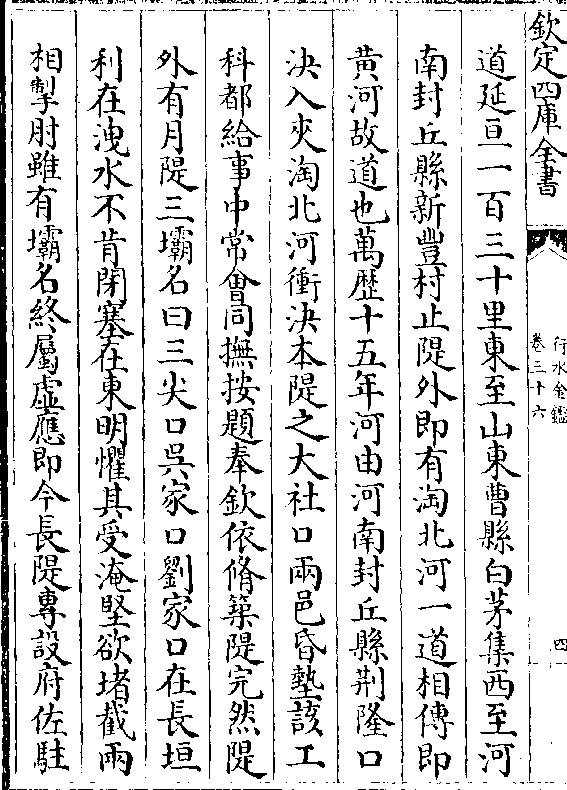 欽定四庫全書
行水金鑑
卷三十六
四
道延亘一百三十里東至山東曹縣白茅集西至河
南封丘縣新豐村止隄外即有淘北河一道相傳即
黃河故道也萬歷十五年河由河南封丘縣荆隆口
決入夾淘北河衝決本隄之大社口兩邑昏墊該工
科都給事中常會同撫按題奉欽依脩築隄完然隄
外有月隄三壩名曰三尖口吳家口劉家口在長垣
利在洩水不肯閉塞在東明懼其受淹堅欲堵截兩
相掣肘雖有壩名終屬虛應即今長隄專設府佐駐